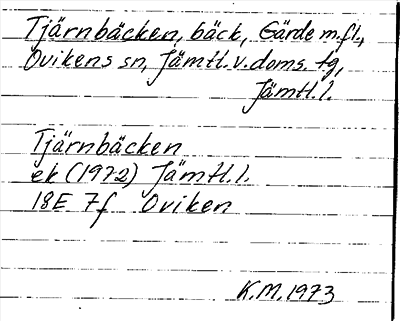 Tjärnbäcken, bäck, Gärde m.fl.,
Ovikens sn, Jämtl.v.doms. tg,
Jämtl.l.
Tjärnbäcken
ek (1972) Jämtl.l.
18E 7f Oviken
K.M.1973